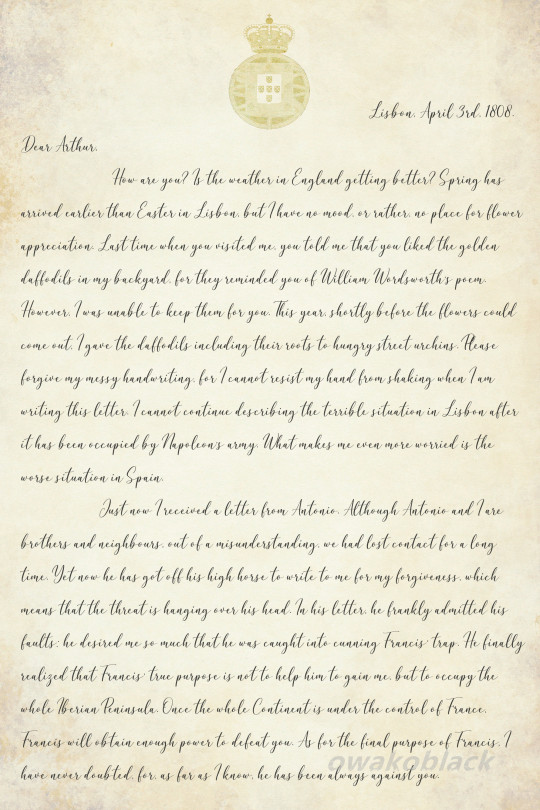 Lisbon, April 3rd, 1808.
Dear Arthur,
How are you? Is the weather in England getting better? Spring has
arrived earlier than Easter in Lisbon, but I have no mood, or rather, no place for flower
appreciation. Last time when you visited me, you told me that you liked the golden
daffodils in my backyard, for they reminded you of William Wordsworth's poem.
However, I was unable to keep them for you. This year, shortly before the flowers could
come out, I gave the daffodils including their roots to hungry street urchins. Please
forgive my messy handwriting, for I cannot resist my hand from shaking when I am
writing this letter. I cannot continue describing the terrible situation in Lisbon after
it has been occupied by Napoleon's army. What makes me even more worried is the
worse situation in Spain.
Just now I received a letter from Antonio. Although Antonio and I are
brothers and neighbours, out of a misunderstanding, we had lost contact for a long
time. Yet now he has got off his high horse to write to me for my forgiveness, which
means that the threat is hanging over his head. In his letter, he frankly admitted his
faults: he desired me so much that he was caught into cunning Francis' trap. He finally
realized that Francis' true purpose is not to help him to gain me, but to occupy the
whole Iberian Peninsula. Once the whole Continent is under the control of France,
Francis will obtain enough power to defeat you. As for the final purpose of Francis, I
have never doubted, for, as far as I know, he has been always against you.
owakoblack